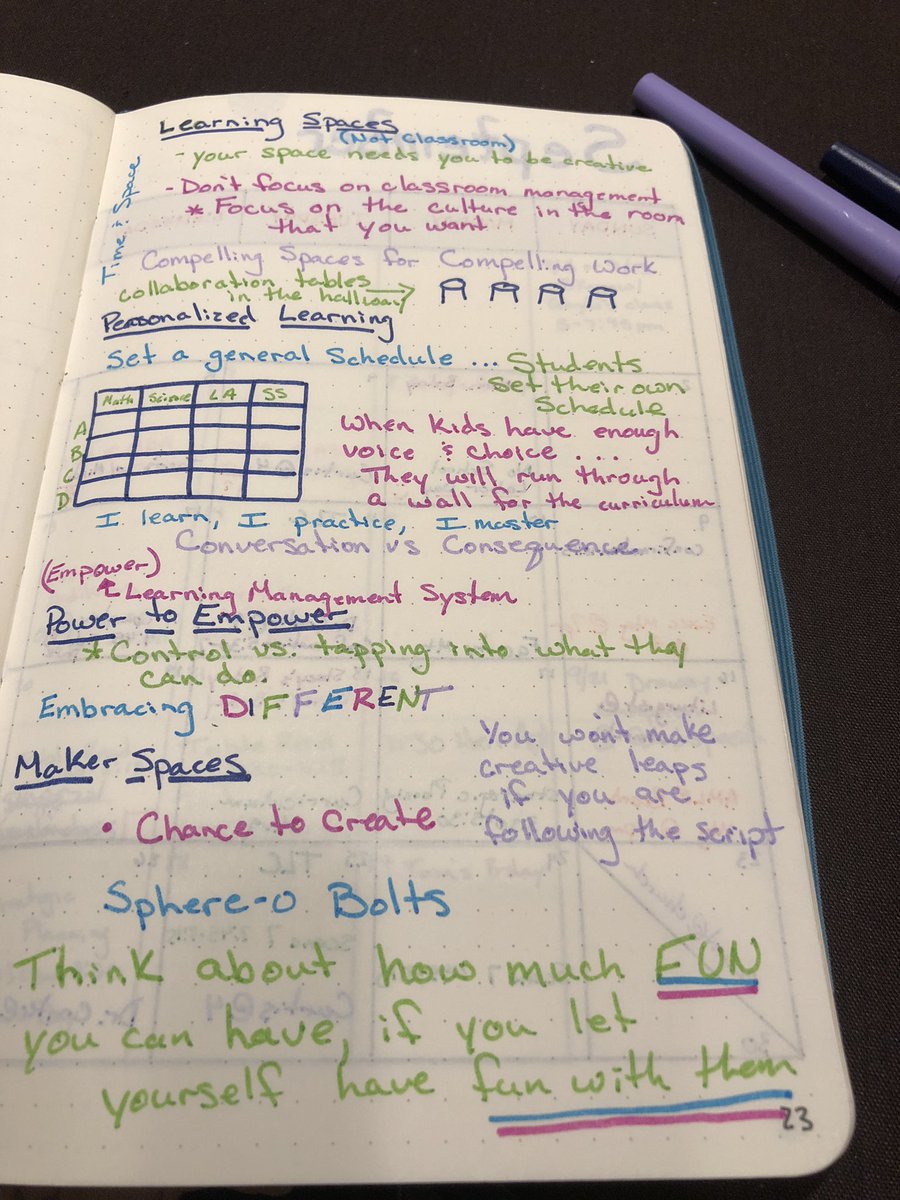 Learning Spaces
(Not Classroom)
- your space needs you to be creative
Time & Space
- Don't focus on classroom management
* Focus on the culture in the room
that you want
Compelling Spaces for Compelling Work
collaboration tables
in the hallway
Personalized Learning
Set a general Schedule ... Students
set their own
Schedule
Math Science LA SS
A
B
C
D
When kids have enough
voice & choice ...
They will run through
a wall for the curriculum
I learn, I practice, I master
Conversation vs Consequence
(Empower)
Learning Management System
Power to Empower
* Control vs. tapping into what they
can do.
Embracing DIFFERENT
You won't make
creative leaps
if you are
following the script
Maker Spaces
• Chance to Create
Sphere-o Bolts
Think about how much FUN
you can have, if you let
yourself have fun with them
23